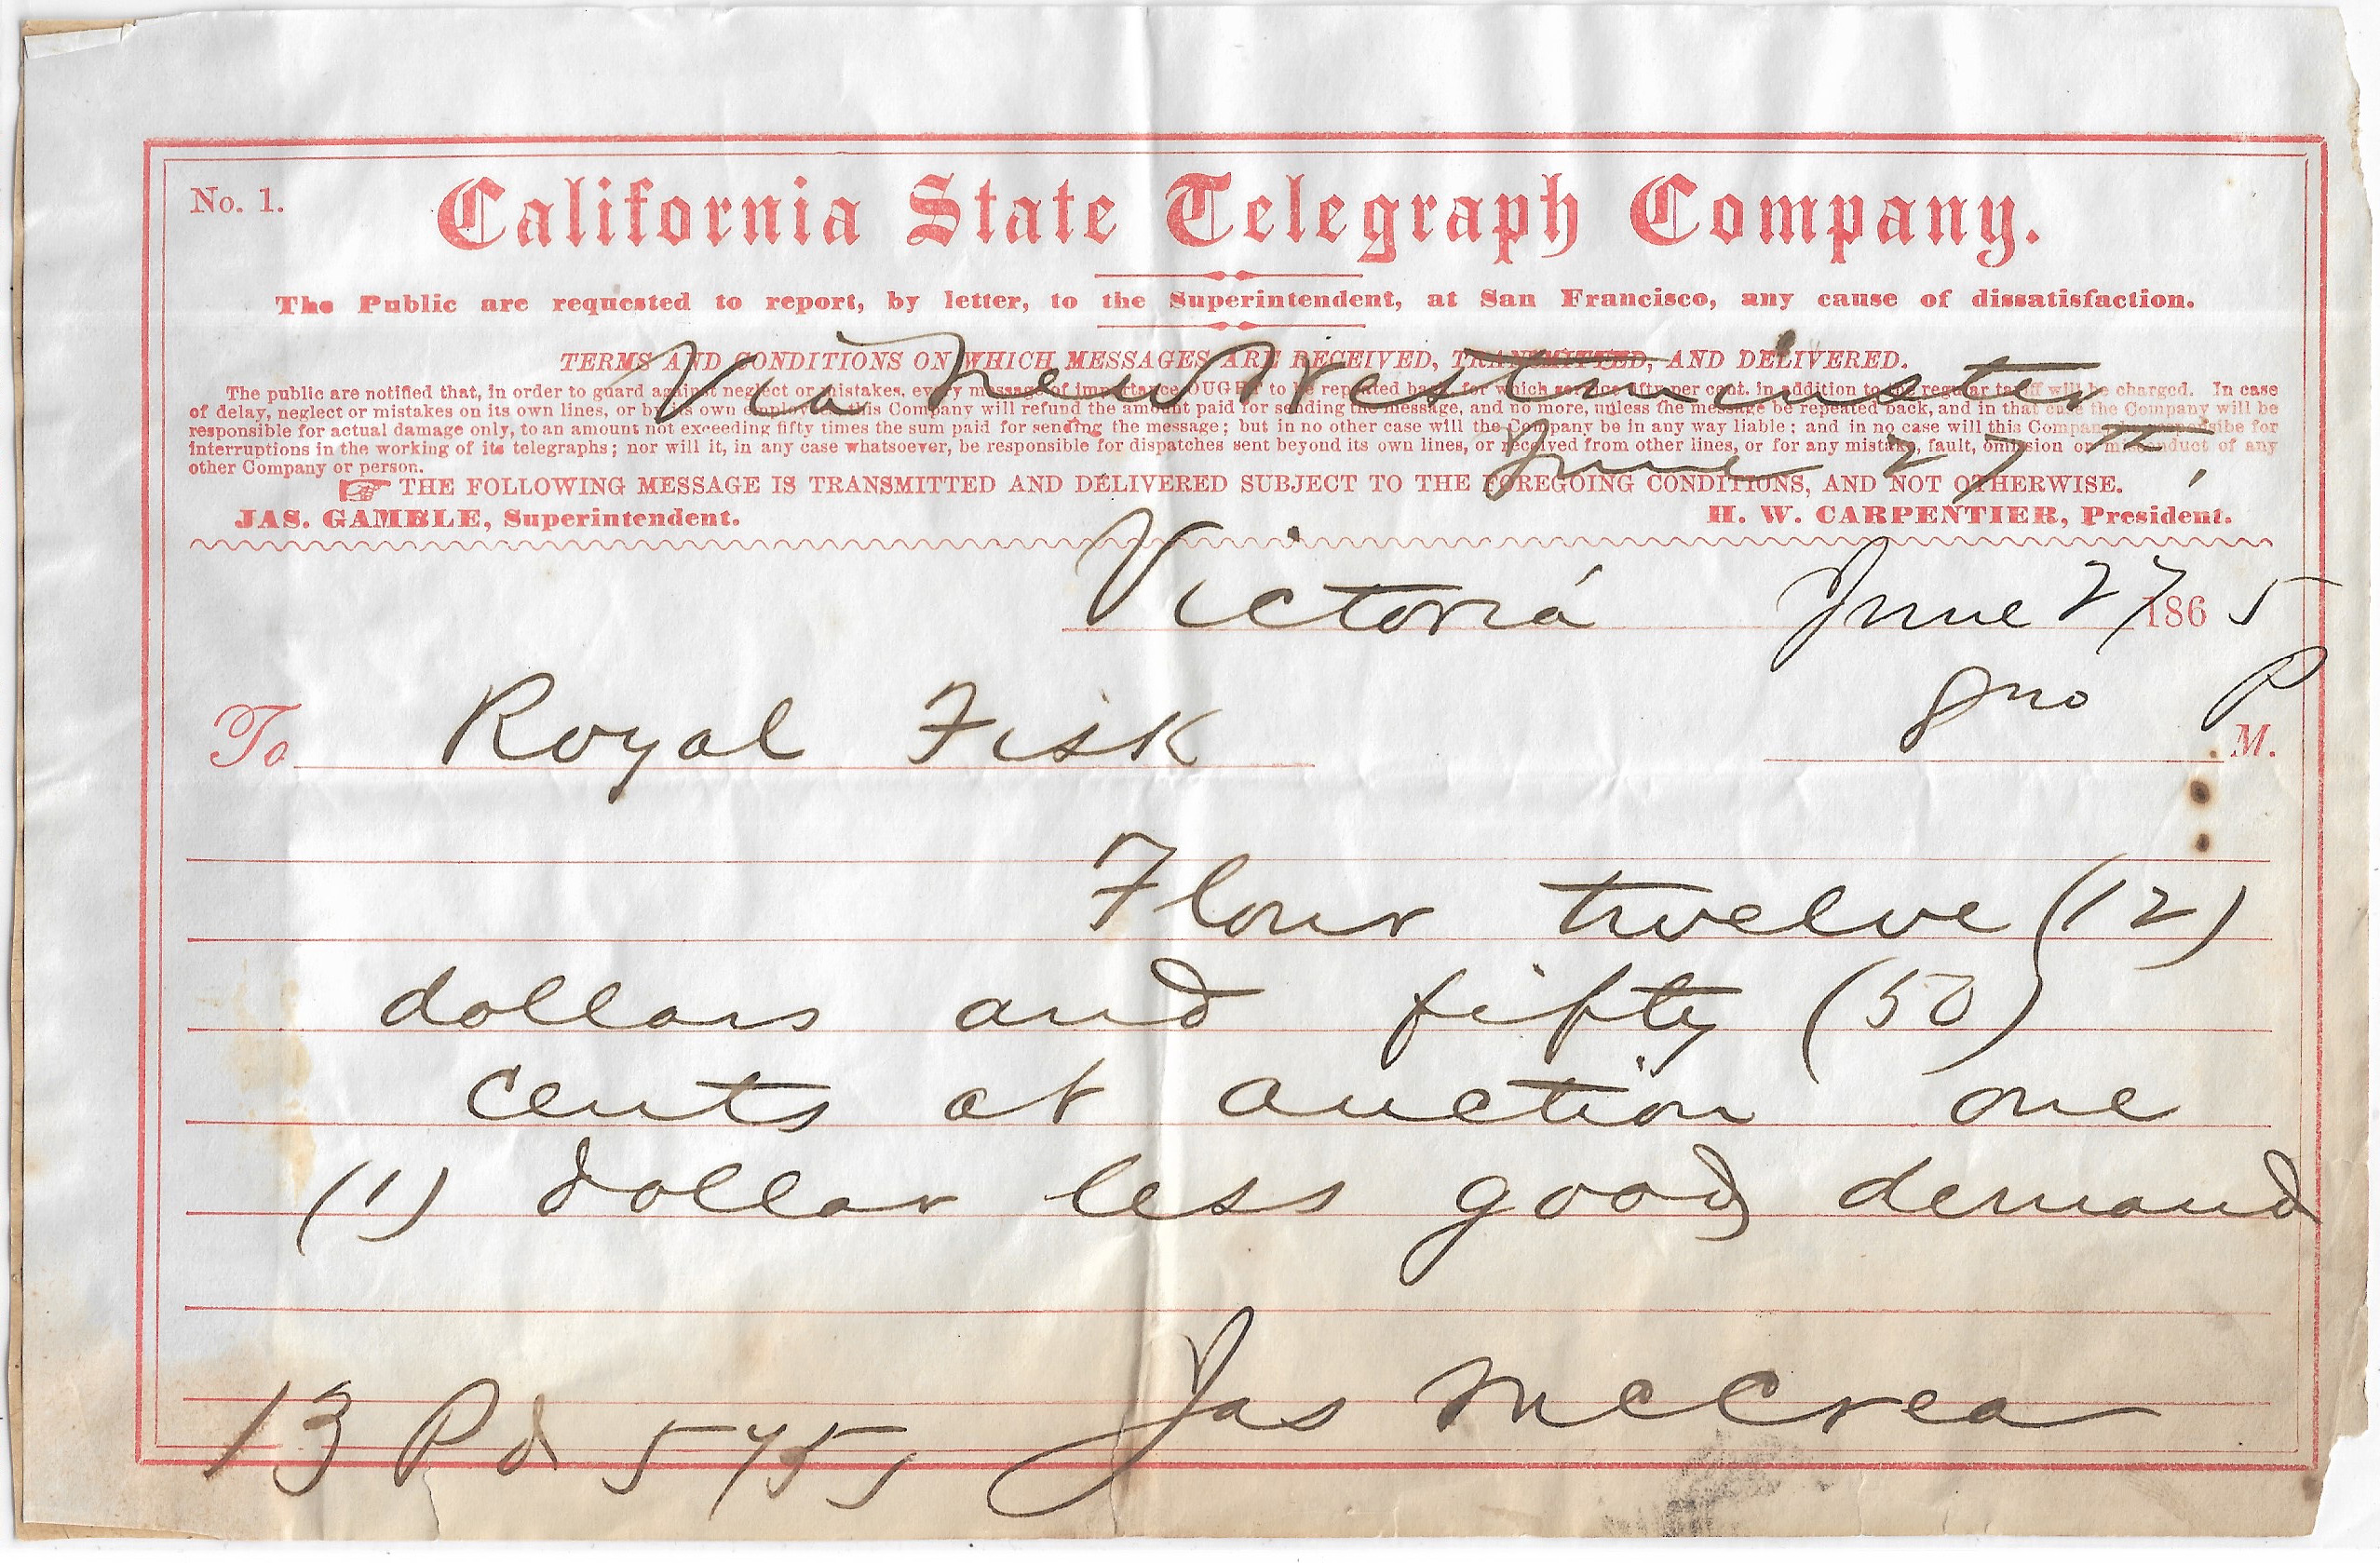 No. 1.
California State Telegraph Company.
The Public are requested to report, by letter, to the Superintendent, at San Francisco, any cause of dissatisfaction.
TERMS AND CONDITIONS ON WHICH MESSAGES ARE RECEIVED, TRANSMITTED, AND DELIVERED.
Via New Westminster
The public are notified that, in order to guard against neglect or mistakes, every message of importance OUGHT to be repeated back, for which service fifty per cent. in addition to the regular tariff will be charged. In case
of delay, neglect or mistakes on its own lines, or by its own employes, this Company will refund the amount paid for sending the message, and no more, unless the message be repeated back, and in that case the Company will be
responsible for actual damage only, to an amount not exceeding fifty times the sum paid for sending the message; but in no other case will the Company be in any way liable; and in no case will this Company be responsibe for
interruptions in the working of its telegraphs; nor will it, in any case whatsoever, be responsible for dispatches sent beyond its own lines, or received from other lines, or for any mistake, fault, omission or misconduct of any
other Company or person.
June 27th,
THE FOLLOWING MESSAGE IS TRANSMITTED AND DELIVERED SUBJECT TO THE FOREGOING CONDITIONS, AND NOT OTHERWISE.
JAS. GAMBLE, Superintendent. H. W. CARPENTIER, President.
Victoria June 27 1865
To Royal Fisk P M.
Flour twelve (12)
dollars and fifty (50)
cents at auction one
(1) dollar less good demand
Jas McCrea
13 Pd 575